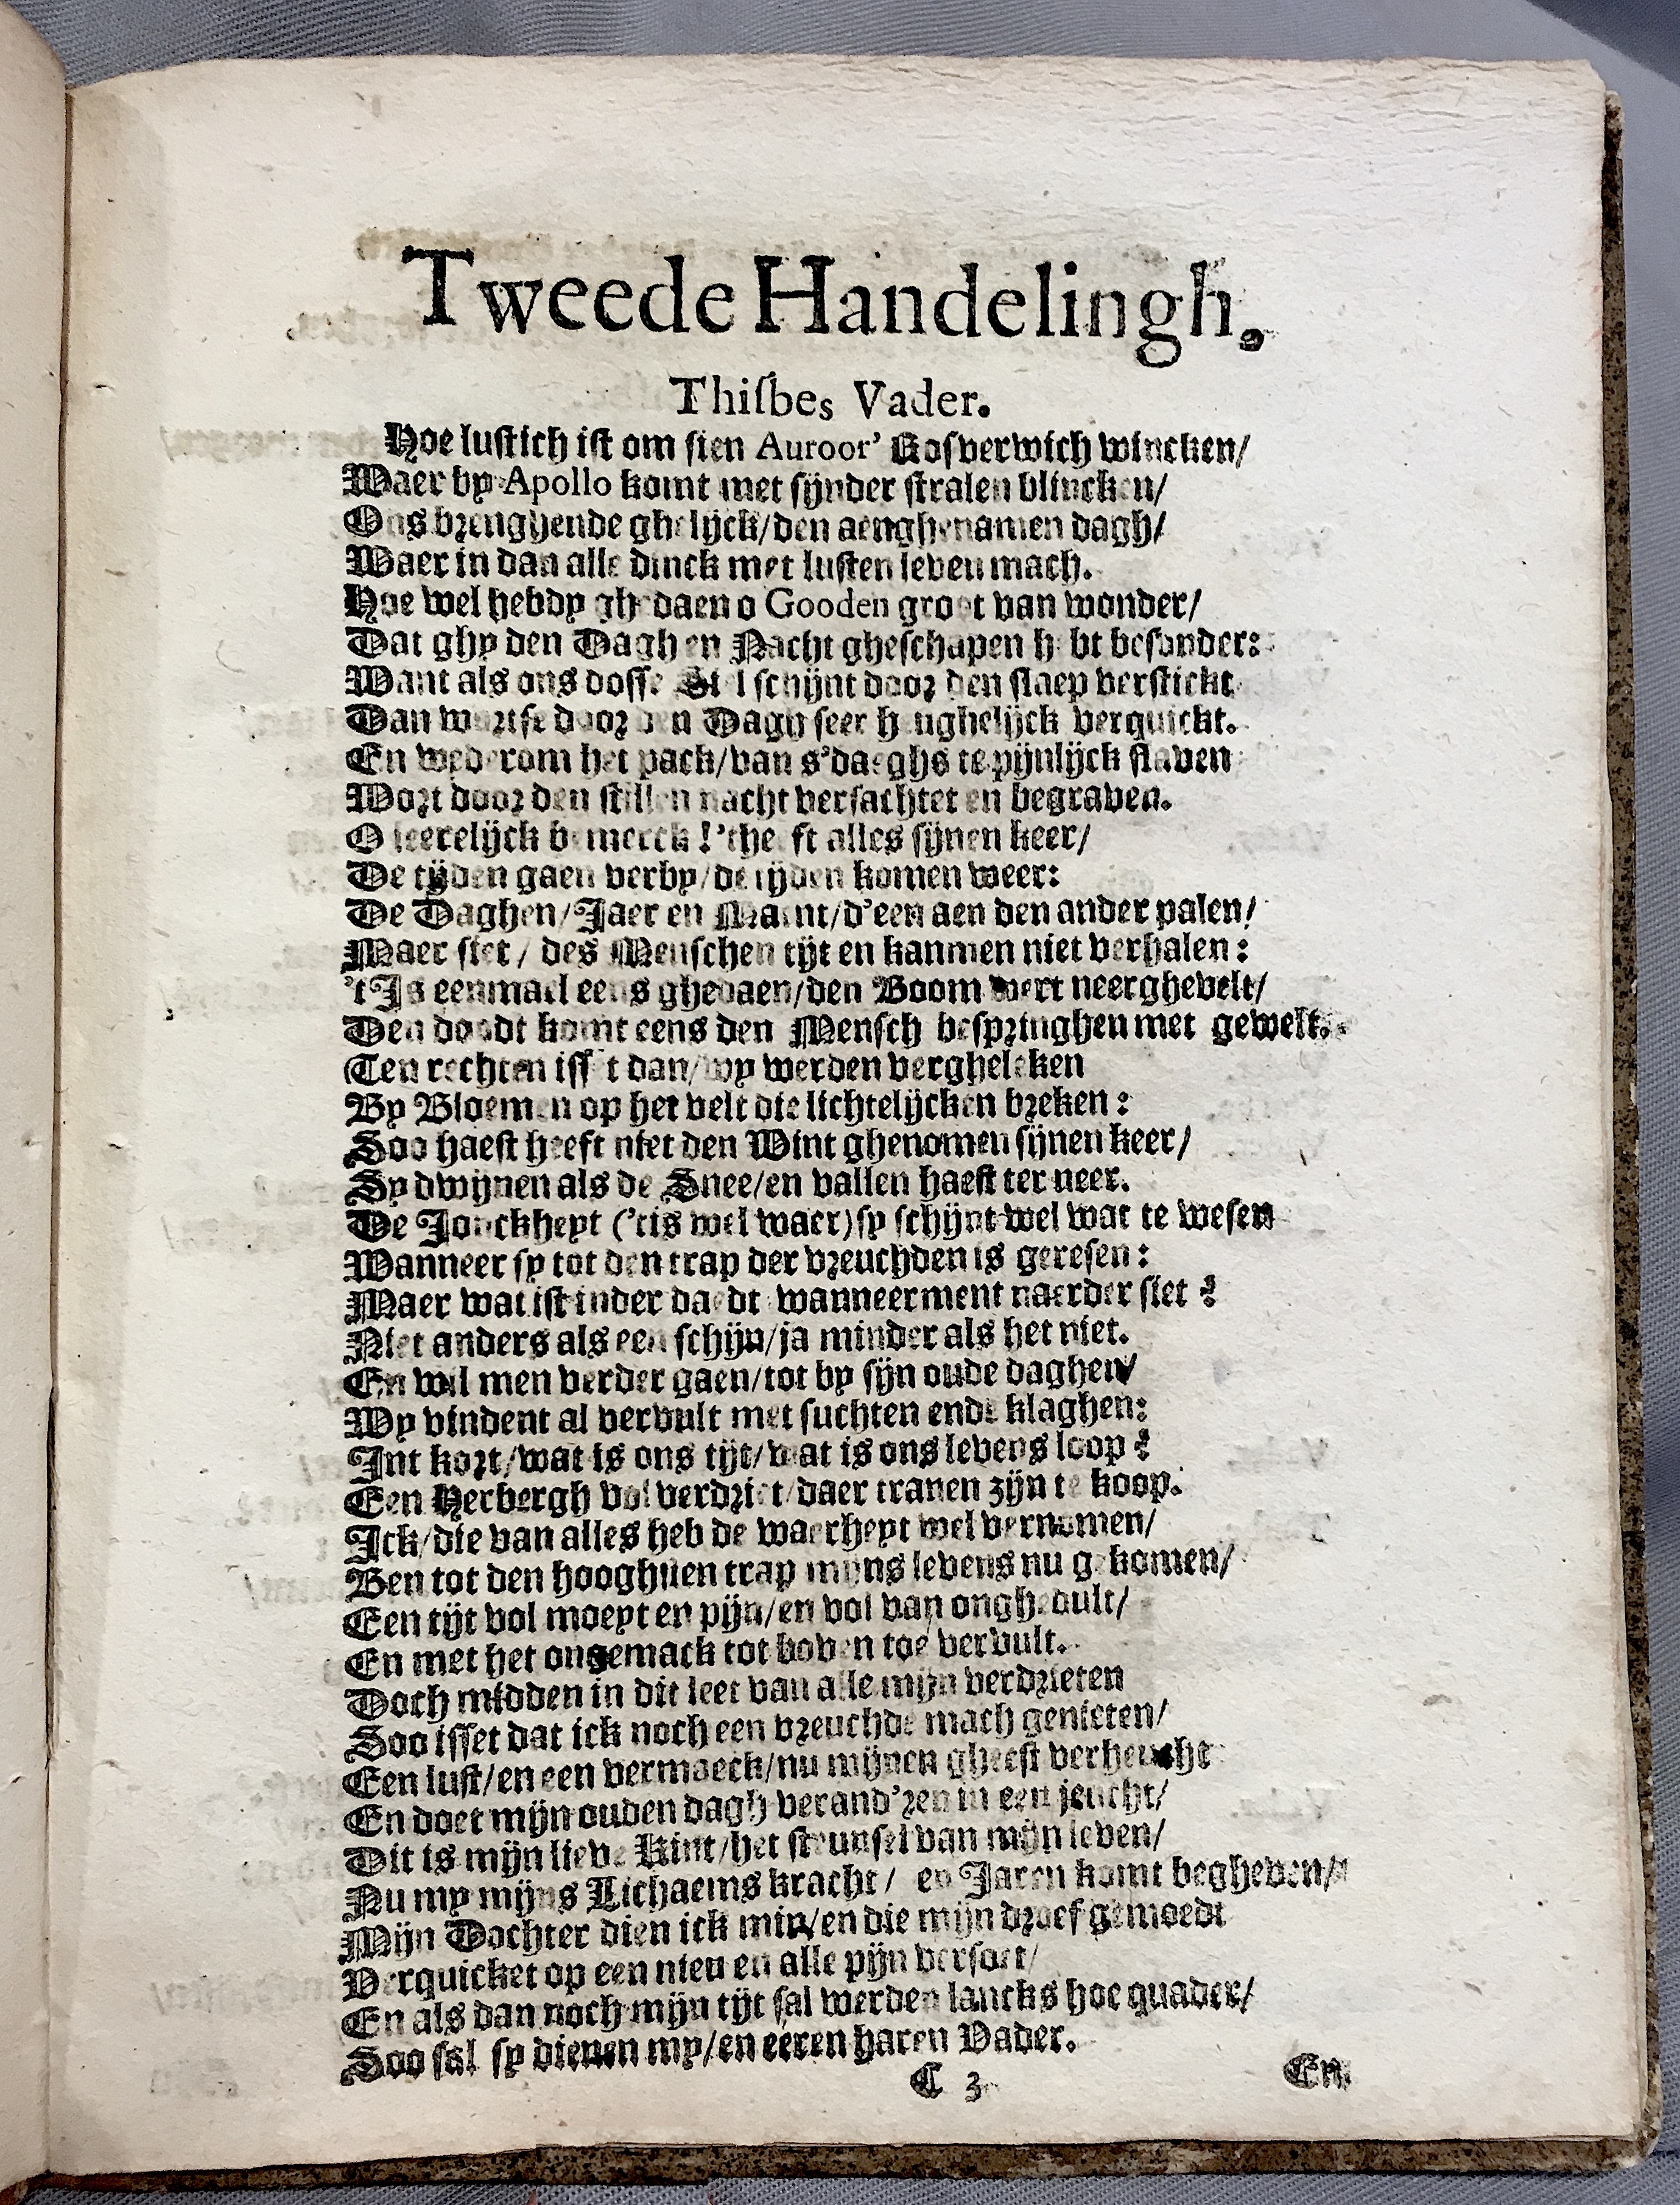 Tweede Handelingh.
Thiſbes Vader.
Hoe luſtich iſt om ſien Auroor' Rosverwich wincken/
Waer by Apollo komt met ſijnder ſtralen blincken/
Ons brenghende ghelijck/den aenghenamen dagh/
Waer in dan alle dinck met luſten leven mach.
Hoe wel hebdy ghedaen o Gooden groot van wonder/
Dat ghy den Dagh en Nacht gheſchapen hebt beſonder:
Want als ons doſſe Siel ſchijnt door den ſlaep verſtickt
Dan wortſe door den Dagh ſeer heughelijck verquickt.
En wederom het pack/van s'daeghs te pijnlijck ſlaven
Wort door den ſtillen nacht verſachtet en begraven.
O leerelijck bemerck! 'theeft alles ſijnen keer/
De tijden gaen verby/de tijden komen weer:
De Daghen/Jaer en Maent/d'een aen den ander palen/
Maer ſiet/ des Menſchen tijt en kanmen niet verhalen:
't Is eenmael eens ghedaen/den Boom wert neerghevelt/
Den doodt komt eens den Menſch beſpringhen met gewelt.
Ten rechten iſſ't dan/wy werden vergheleken
By Bloemen op het velt die lichtelijcken breken:
Soo haeſt heeft niet den Wint ghenomen ſijnen keer/
Sy dwijnen als de Snee/en vallen haeſt ter neer.
De Jonckheyt ('tis wel waer) ſy ſchijnt wel wat te weſen
Wanneer ſy tot den trap der vreuchden is gereſen:
Maer wat iſt inder daedt wanneerment naerder ſiet?
Niet anders als een ſchijn/ja minder als het niet.
En wil men verder gaen/tot by ſijn oude daghen/
Wy vindent al vervult met ſuchten ende klaghen:
Int kort/wat is ons tijt/wat is ons levens loop?
Een Herbergh vol verdriet/daer tranen zijn te koop.
Ick/die van alles heb de waerheyt wel vernomen/
Ben tot den hooghſten trap mijns levens nu gekomen/
Een tijt vol moeyt en pijn/en vol van onghedult/
En met het ongemack tot boven toe vervult.
Doch midden in dit leet van alle mijn verdrieten
Soo iſſet dat ick noch een vreuchde mach genieten/
Een luſt/en een vermaeck/nu mijnen gheeſt verheucht
En doet mijn ouden dagh verand'ren in een jeucht/
Dit is mijn lieve Kint/het ſteunſel van mijn leven/
Nu my mijns Lichaems kracht/ en Jaren komt begheven/
Mijn Dochter dien ick min/en die mijn droef gemoedt
Verquicket op een nieu en alle pijn verſoet/
En als dan noch mijn tijt ſal werden lancks hoe quader/
Soo ſal ſy dienen my/en eeren haren Vader.
C 3 En.